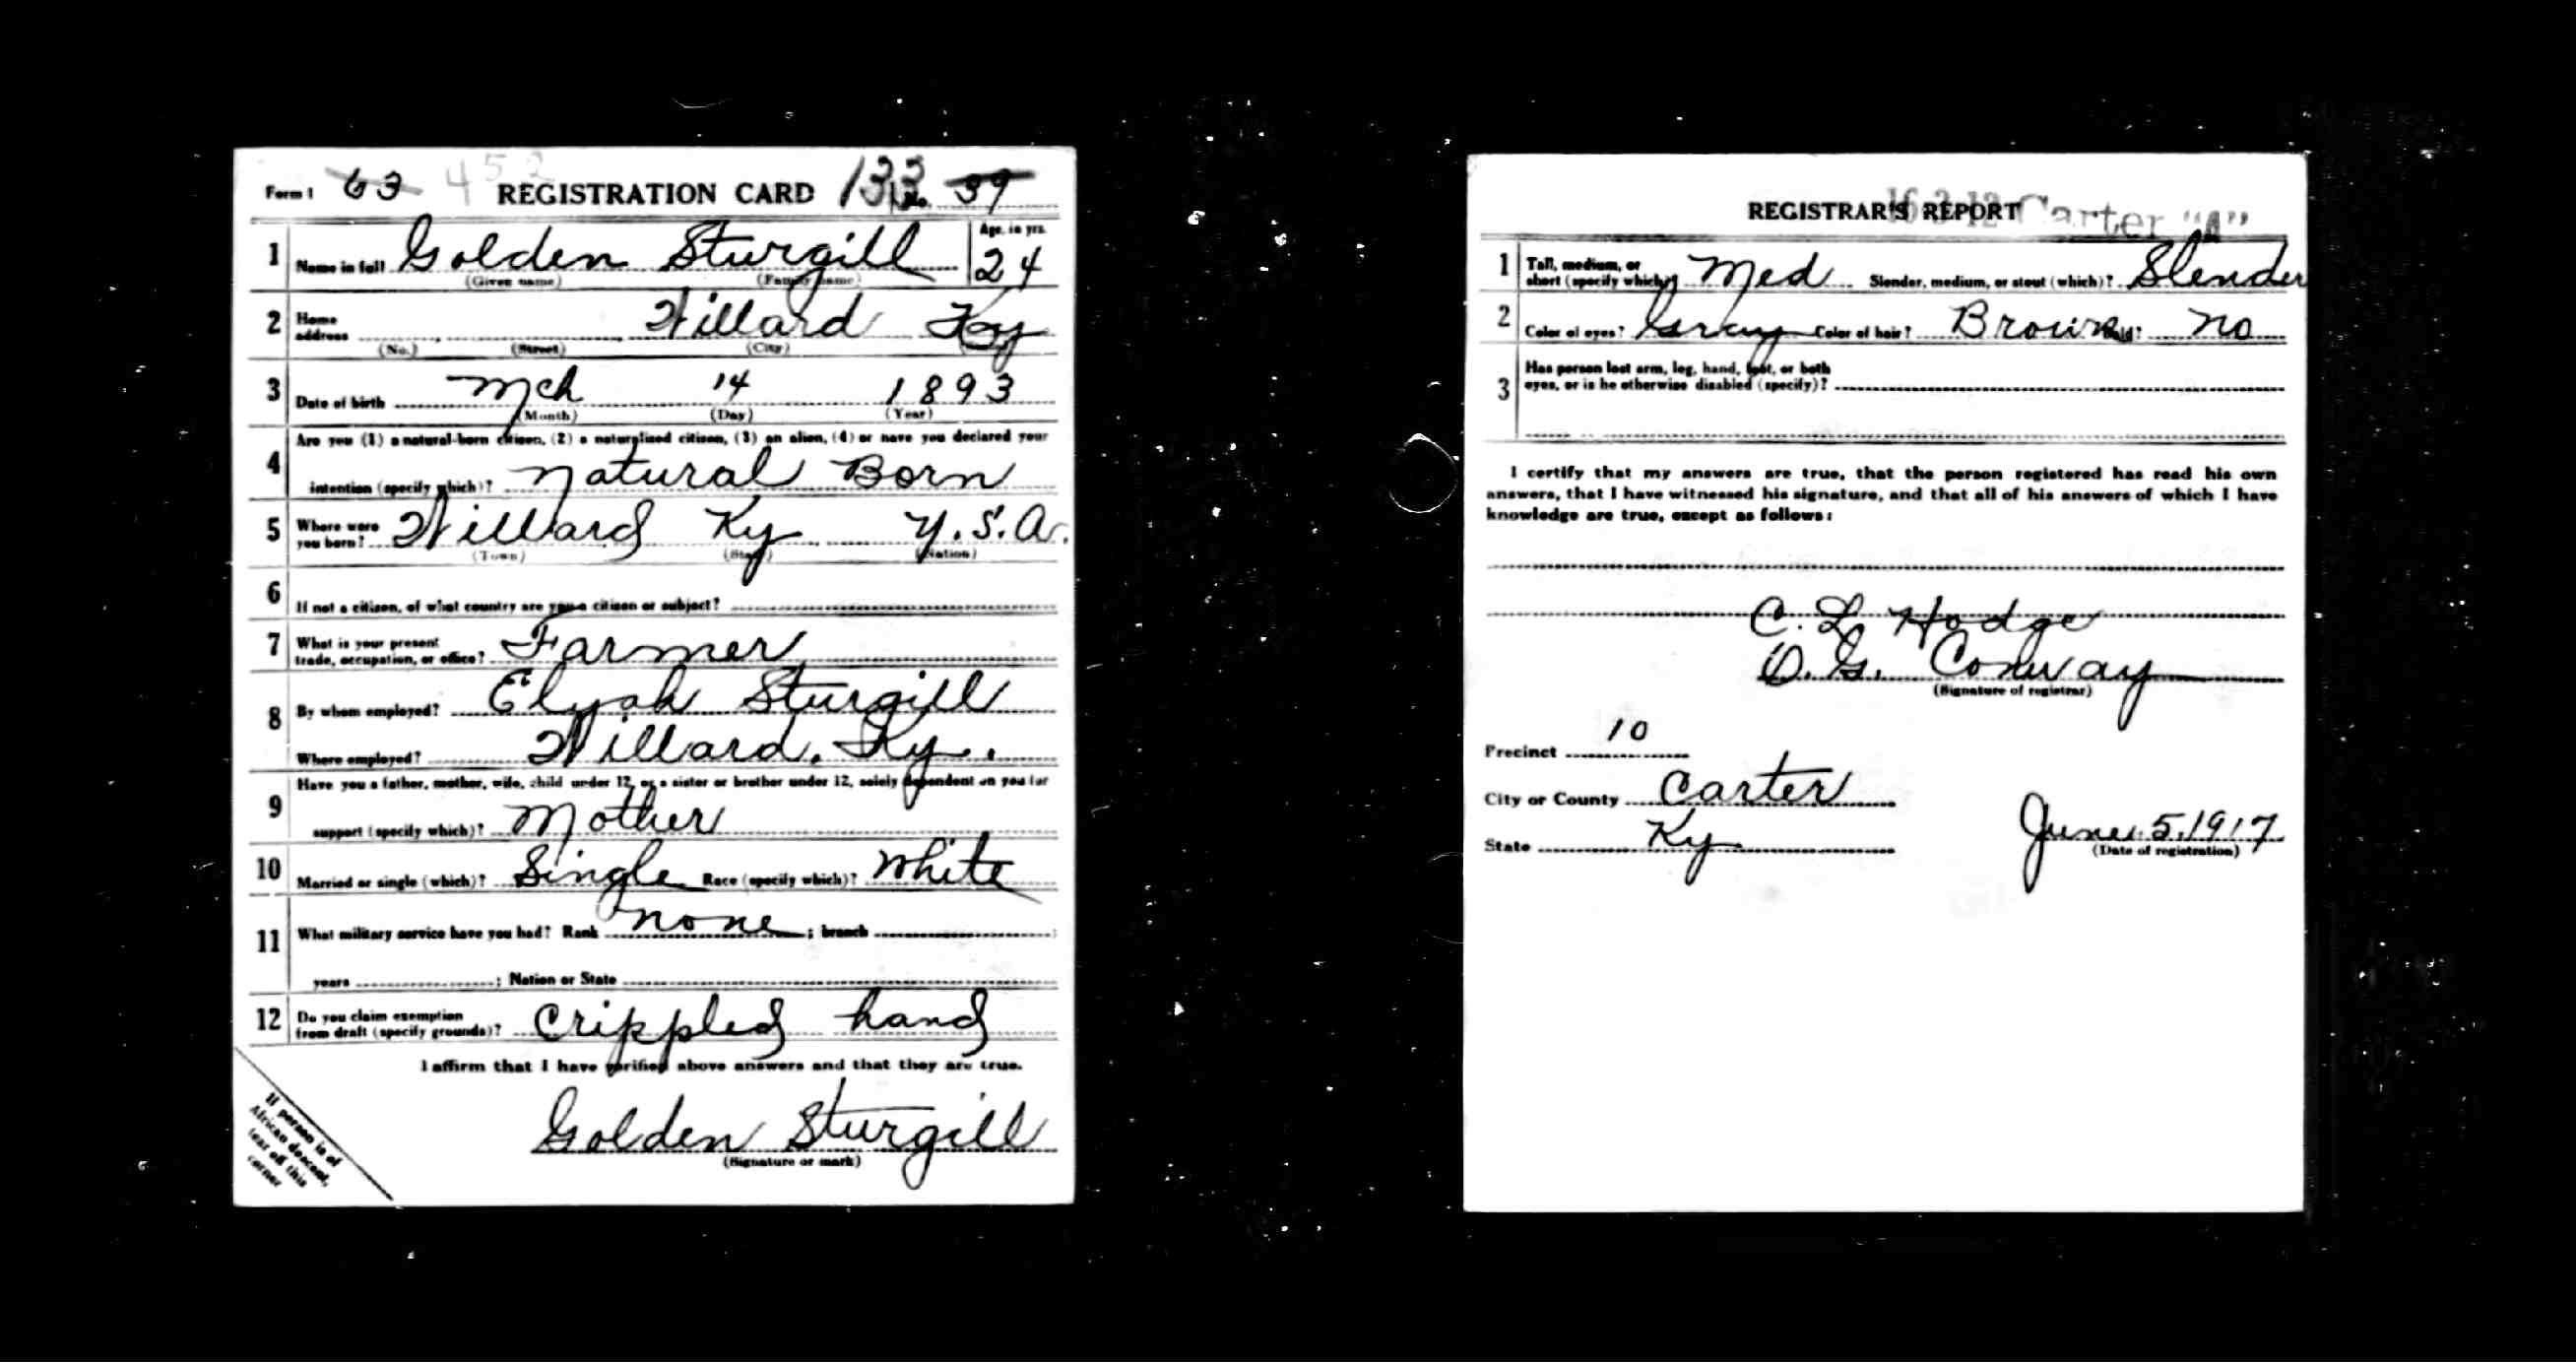 Form 1 63 452 REGISTRATION CARD 133 No. 39
1 Name in full Golden Sturgill Age, in yrs. 24
(Given name) (Family name)
2 Home address Willard Ky
(No.) (Street) (City)
3 Date of birth Mch 14 1893
(Month) (Day) (Year)
4 Are you (1) a natural-born citizen, (2) a naturalized citizen, (3) an alien, (4) or have you declared your
intention (specify which)? Natural Born
5 Where were you born? Willard Ky U.S.A.
(Town) (State) (Nation)
6 If not a citizen, of what country are you a citizen or subject?
7 What is your present trade, occupation, or office? Farmer
8 By whom employed? Elijah Sturgill
Where employed? Willard, Ky.
9 Have you a father, mother, wife, child under 12, or a sister or brother under 12, solely dependent on you for
support (specify which)? Mother
10 Married or single (which)? Single Race (specify which)? White
11 What military service have you had? Rank none ; branch
years ; Nation or State
12 Do you claim exemption from draft (specify grounds)? Crippled hand
I affirm that I have verified above answers and that they are true.
Golden Sturgill
(Signature or mark)
If person is of
African descent,
tear off this
corner
REGISTRAR'S REPORT 16-3-12 Carter "A"
1 Tall, medium, or short (specify which)? Med Slender, medium, or stout (which)? Slender
2 Color of eyes? Gray Color of hair? Brown Bald? No
3 Has person lost arm, leg, hand, foot, or both
eyes, or is he otherwise disabled (specify)?
I certify that my answers are true, that the person registered has read his own
answers, that I have witnessed his signature, and that all of his answers of which I have
knowledge are true, except as follows:
C. L. Hodge
O. G. Conway
(Signature of registrar)
Precinct 10
City or County Carter
State Ky
June 5, 1917
(Date of registration)